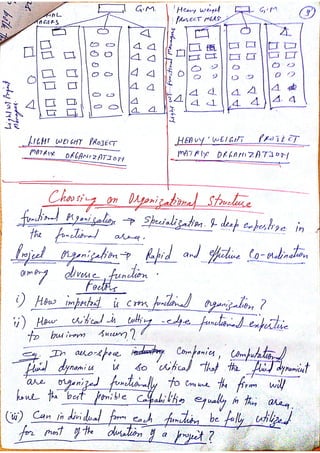 G.M
Light Wt Project
Managers
LIGHT WEIGHT PROJECT
MATRIX ORGANIZATION
Heavy Weight
PROJECT MGRS
G.M
HEAVY-WEIGHT PROJECT
MATRIX ORGANIZATION
Choosing an Organizational Structure
functional organization → Specialization & deep expertise in
the functional area.
Project organization → Rapid and effective Co-ordination
among diverse function.
Factors
i) How important is cross functional organization?
ii) How critical is cutting-edge functional expertise
to business success?
Eg. In aero-space companies, computational
fluid dynamics is so critical that the fluid dynamicist
are organized functionally to ensure the firm will
have the best possible Capabilities equally in this area.
(iii) Can individual from each function be fully utilized
for most of the duration of a project?